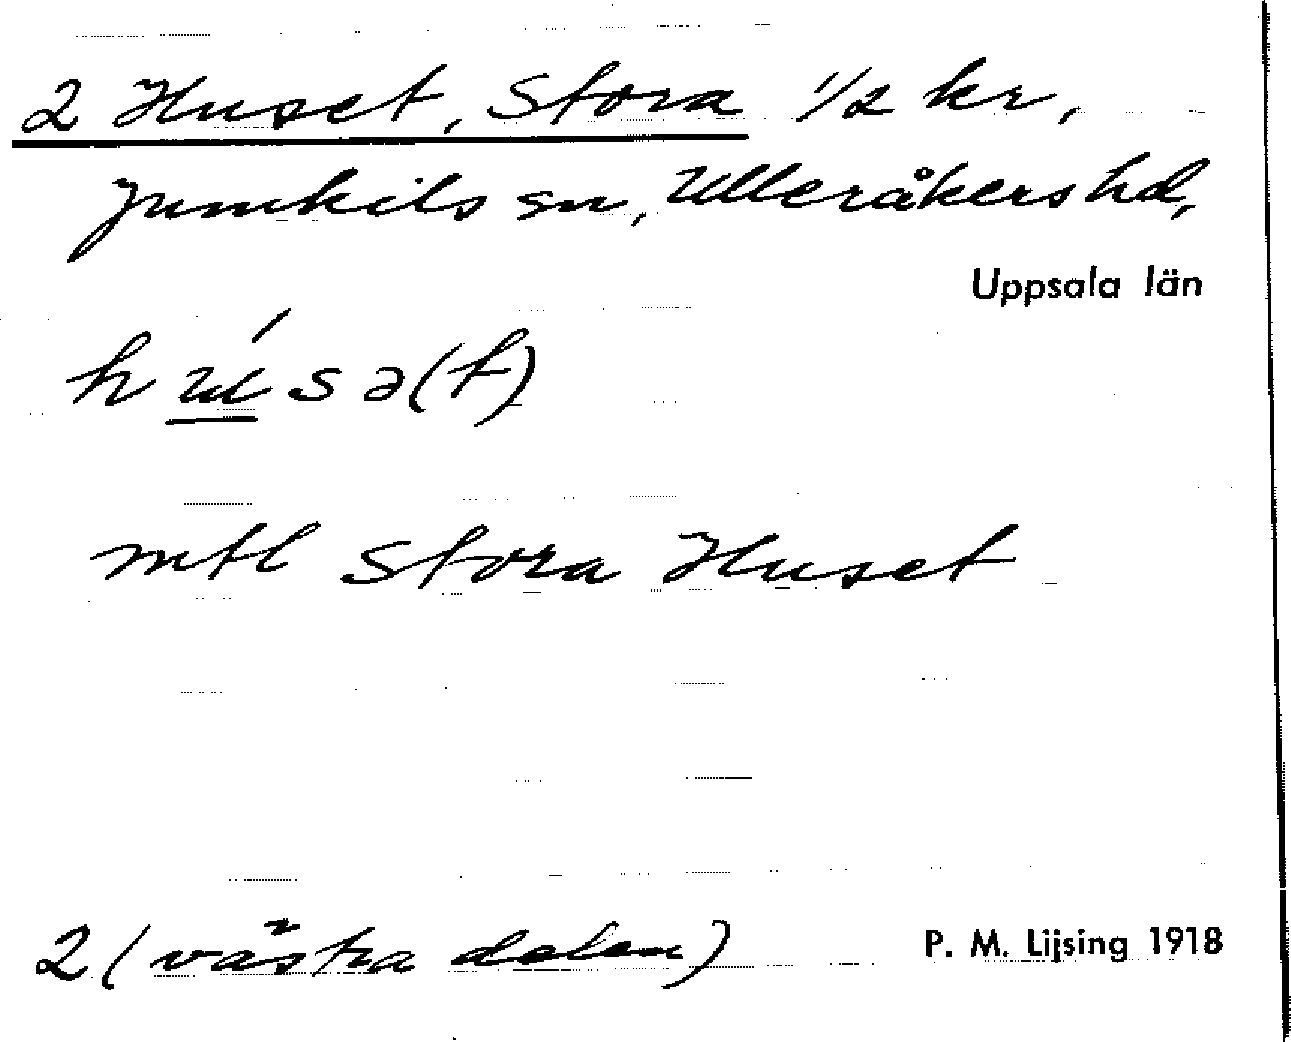 2 Huset, Stora 1/2 kr,
Jumkils sn, Ulleråkers hd,
Uppsala län
h ú s ə(t)
mtl Stora Huset
2 (västra delen)
P. M. Lijsing 1918